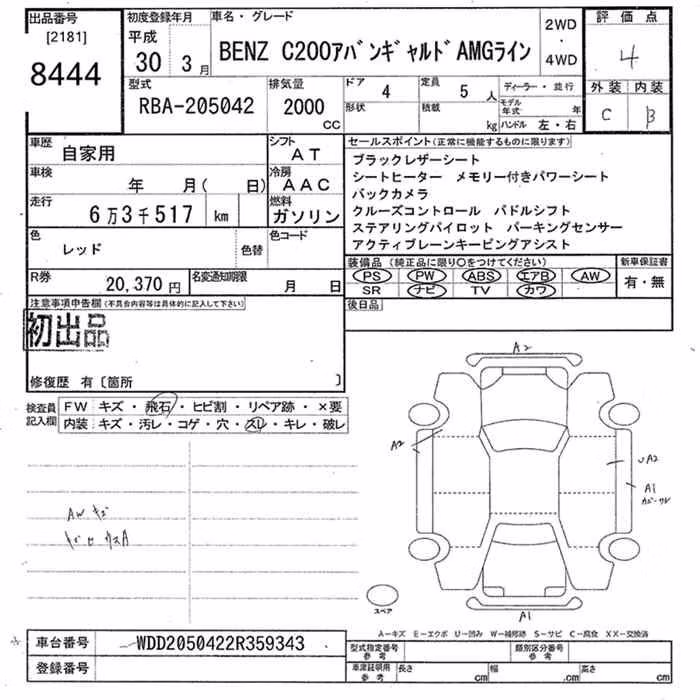 出品番号
[2181]
8444
初度登録年月
平成
30 3月
車名・グレード
BENZ C200アバンギャルドAMGライン
2WD
・
4WD
評価点
4
外装 内装
C B
型式
RBA-205042
排気量
2000
CC
ドア
4
定員
5 人
ディーラー・並行
形状
積載
kg
モデル年式 年
ハンドル 左・右
車歴
自家用
シフト
AT
車検
年 月( 日)
冷房
AAC
走行
6万3千517 km
燃料
ガソリン
色
レッド
色替
色コード
R券
20,370円
名変通知期限
月 日
セールスポイント(正常に機能するものに限ります)
ブラックレザーシート
シートヒーター メモリー付きパワーシート
バックカメラ
クルーズコントロール パドルシフト
ステアリングパイロット パーキングセンサー
アクティブレーンキーピングアシスト
装備品(純正品に限り○をつけてください)
PS PW ABS エアB AW
SR ナビ TV カワ
新車保証書
有・無
後日品
注意事項申告欄(不具合内容等は具体的に記入して下さい)
初出品
修復歴 有〔箇所 〕
検査員
記入欄
FW キズ・飛石・ヒビ割・リペア跡・×要
内装 キズ・汚レ・コゲ・穴・スレ・キレ・破レ
AW キズ
A2
A2
UA2
A1
A1
スペア
A−キズ E−エクボ U−凹み W−補修跡 S−サビ C−腐食 XX−交換済
車台番号
WDD2050422R359343
登録番号
型式指定番号
参考
類別区分番号
参考
車庫証明用
参考
長さ cm
幅 cm
高さ cm